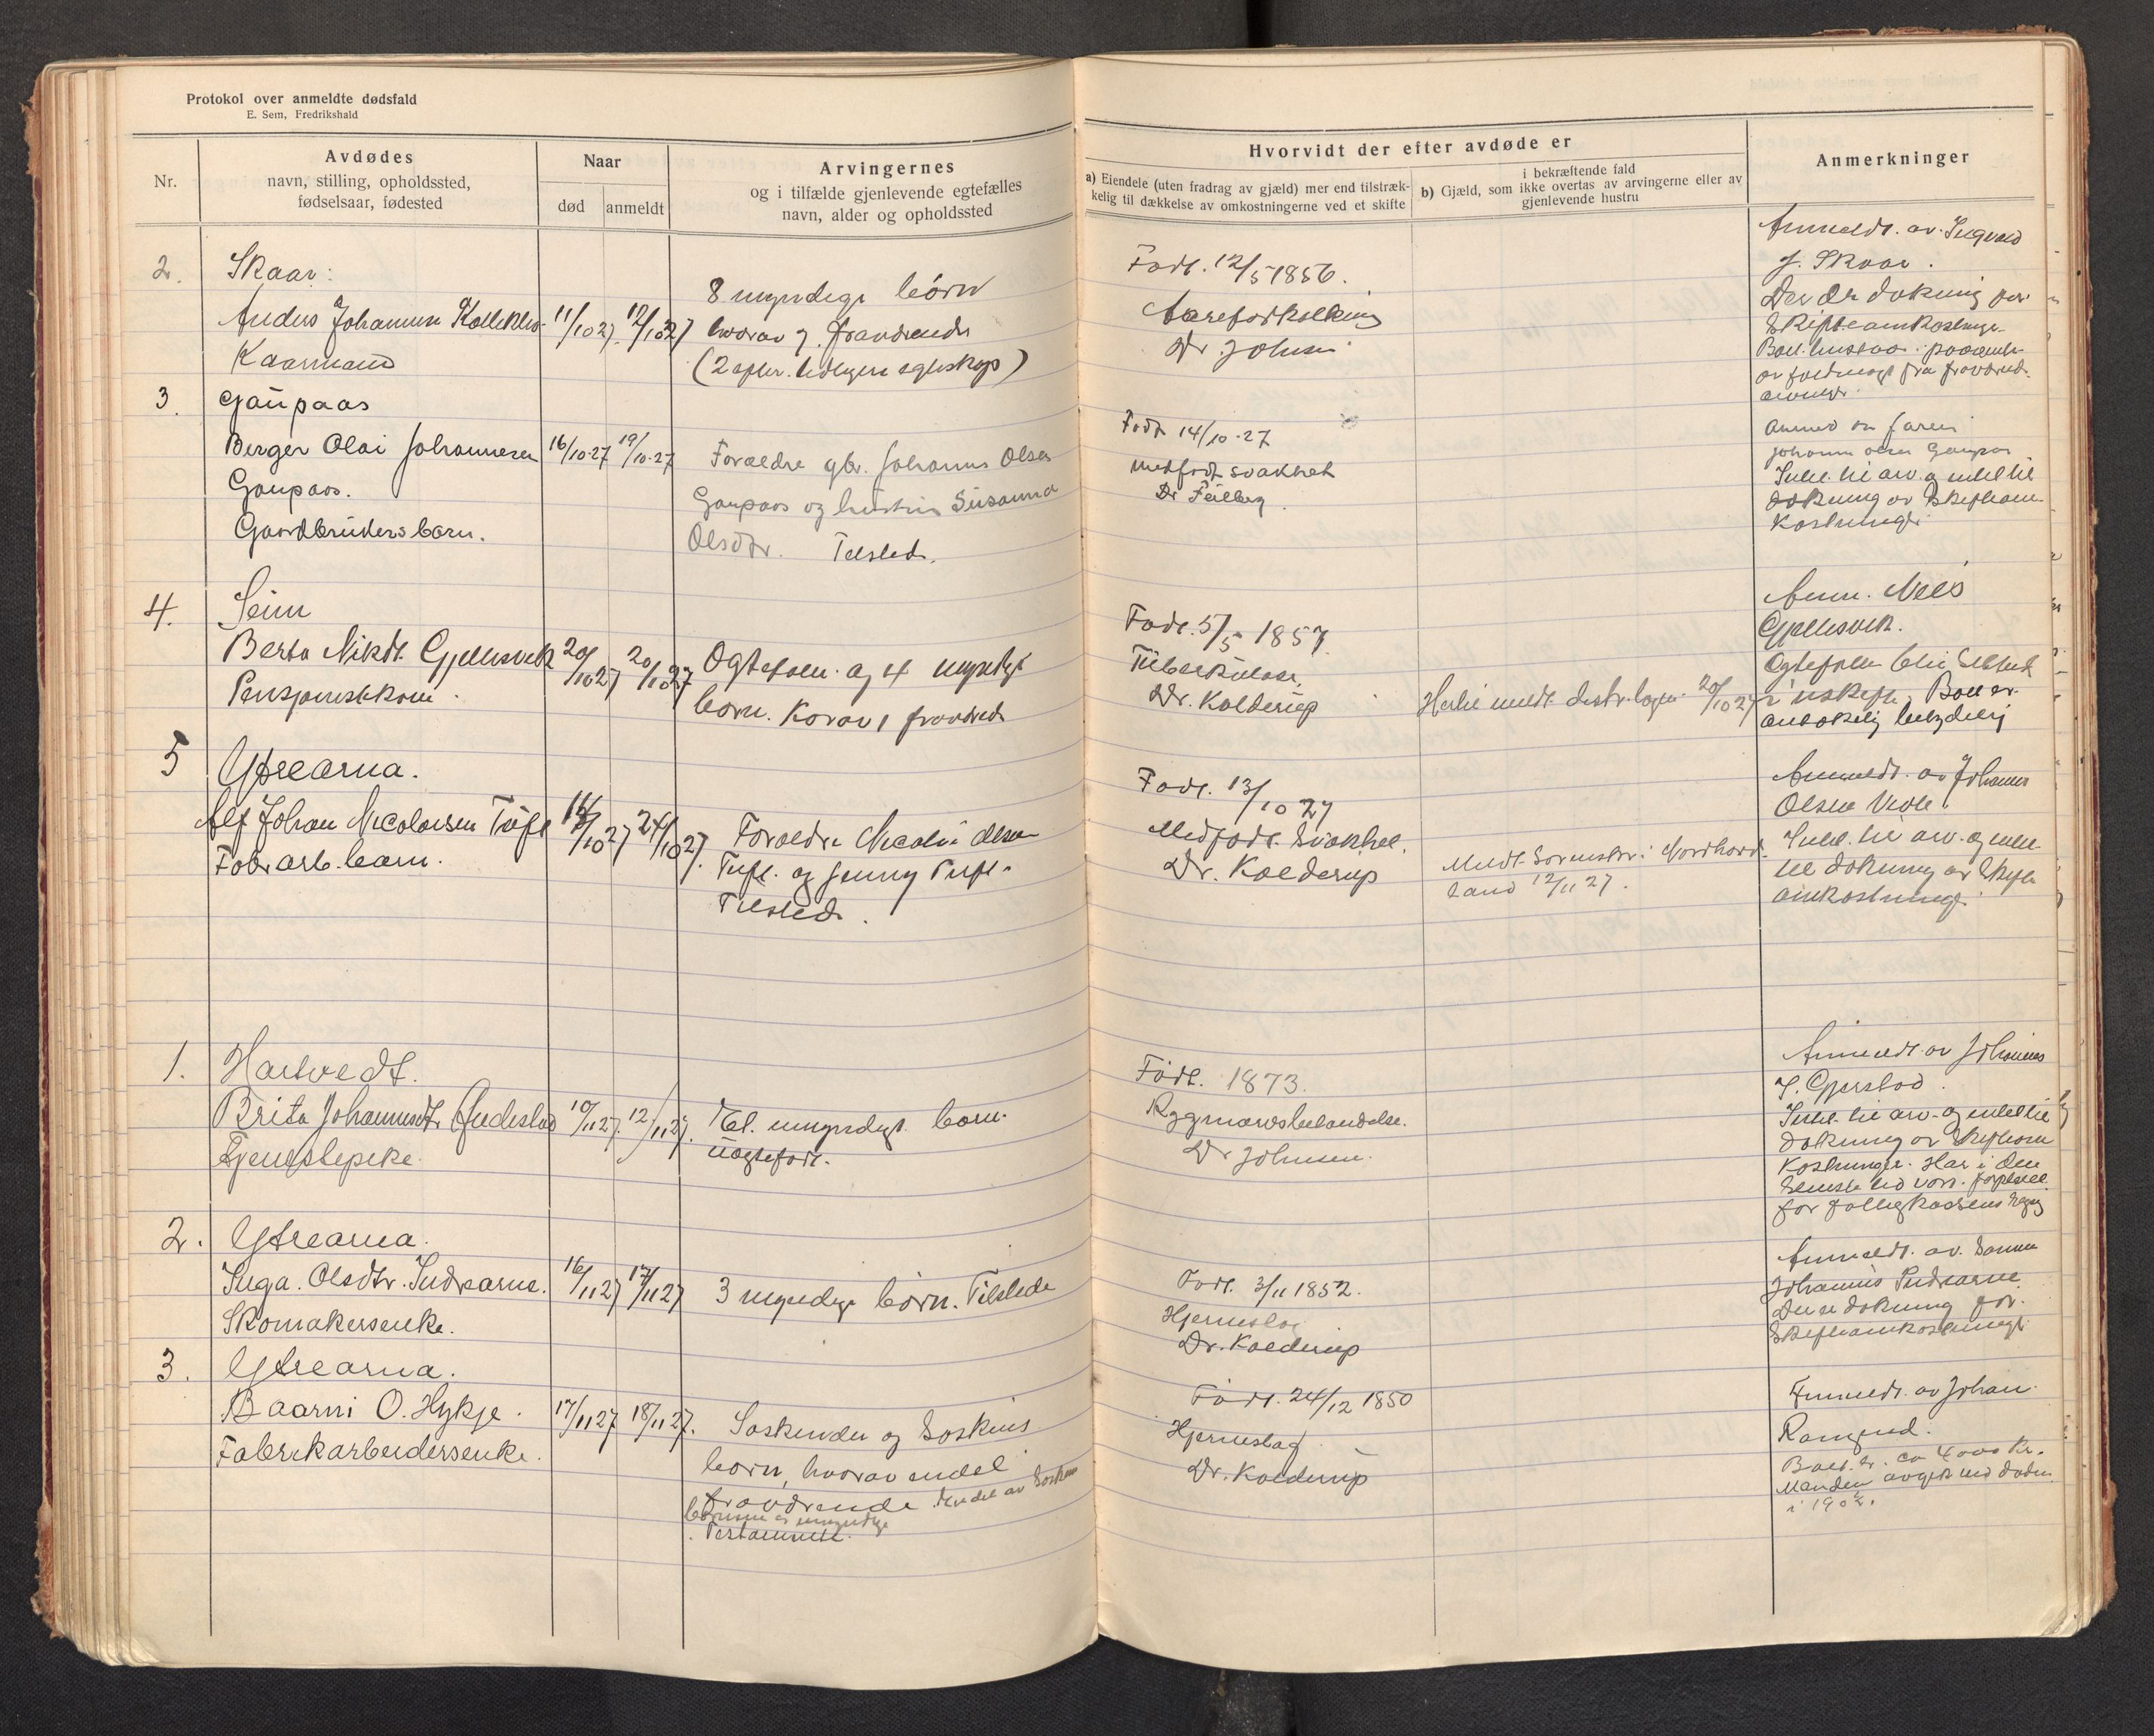 Protokol over anmeldte dødsfald
E. Sem, Fredrikshald
Nr.
Avdødes
navn, stilling, opholdssted,
fødselsaar, fødested
Naar
død
anmeldt
Arvingernes
og i tilfælde gjenlevende egtefælles
navn, alder og opholdssted
Hvorvidt der efter avdøde er
a) Eiendele (uten fradrag av gjæld) mer end tilstræk-
kelig til dækkelse av omkostningerne ved et skifte
i bekræftende fald
b) Gjæld, som ikke overtas av arvingerne eller av
gjenlevende hustru
Anmerkninger
2.
Skaar:
Anders Johannesen
Kaarmand
11/10 27.
12/10 27
8 myndige børn
hvorav 7. fraværende
(2 efter. tidligere egteskap)
Født. 12/5 1856.
Aareforkalkning
Dr Johnsen
Anmeldt. av. Ingvald
J. Skaar.
Der er dækning for
3.
Gaupaas
Berger Olai Johannesen
Gaupaas.
Gaardbrukersbarn.
16/10-27
19/10-27
Forældre gbr. Johannes Olsen
Gaupaas og hustru Susanna
Olsdtr. Tilsted.
Født 14/10-27
medfødt svakhet
Dr Feilberg
Anmeld av faren
Johannes Olsen Gaupaas
Intet til arv og intet til
dækning av skifteom-
kostninger
4.
Seim
Berta Nilsdt. Gjellesvik
Pensjonistkone.
20/10 27
20/10 27
Egtefælle. og 4 myndige
børn. Korav 1 fraværende
Født. 5/5 1857
Tuberkulose.
Dr. Kolderup
20/10 27
Anm. Nils
Gjellesvik.
5
Ytrearna.
Alf Johan Nicolaisen Tuft
Fabr.arb. barn.
/10 27
24/10 27.
Forældre Nicolai Olsen
Tuft. og Jenny Tuft.
Tilsted.
Født. 13/10 27
Medfødt. Svakhet.
Dr. Kolderup
Meldt Sorenskr. i Nordhord-
land 12/11 27.
Anmeldt. av Johannes
Olsen
Intet. til arv. og intet
til dækning av skifte
omkostninger.
1.
Hartvedt.
Brita Johannesdtr.
Tjenestepike.
10/11 27.
12/11 27.
Et. umyndigt. barn.
uegtefødt.
Født. 1873.
Rygmarvsbetændelse.
Dr Johnsen.
Anmeldt. av Johannes
J. Gjerstad.
Intet. til arv. og intet til
dækning av skifteom
kostninger. Har i den
seneste tid vær.
for fattigkassens regning
2.
Ytrearna.
Inga. Olsdtr. Indrearne.
Skomakerenke.
16/11 27
17/11 27
3 myndige børn. Tilstede
Født. 3/11 1852.
Hjerneslag
Dr. Kolderup
Anmeldt. av. Sønnen
Johannes Indrearne.
Der er dækning for.
skifteomkostninger
3.
Ytrearna.
Baarni O. Hykje.
Fabrikarbeidersenke.
17/11 27
18/11 27.
Søskender og Søskens
børn, hvorav endel
fraværende. Endel av Søsken
børnene er umyndige
Testamente.
Født. 24/12 1850
Hjerneslag
Dr. Kolderup
Anmeldt. av Johan
Boet. er. ca 4000 kr.
Manden avgik ved døden